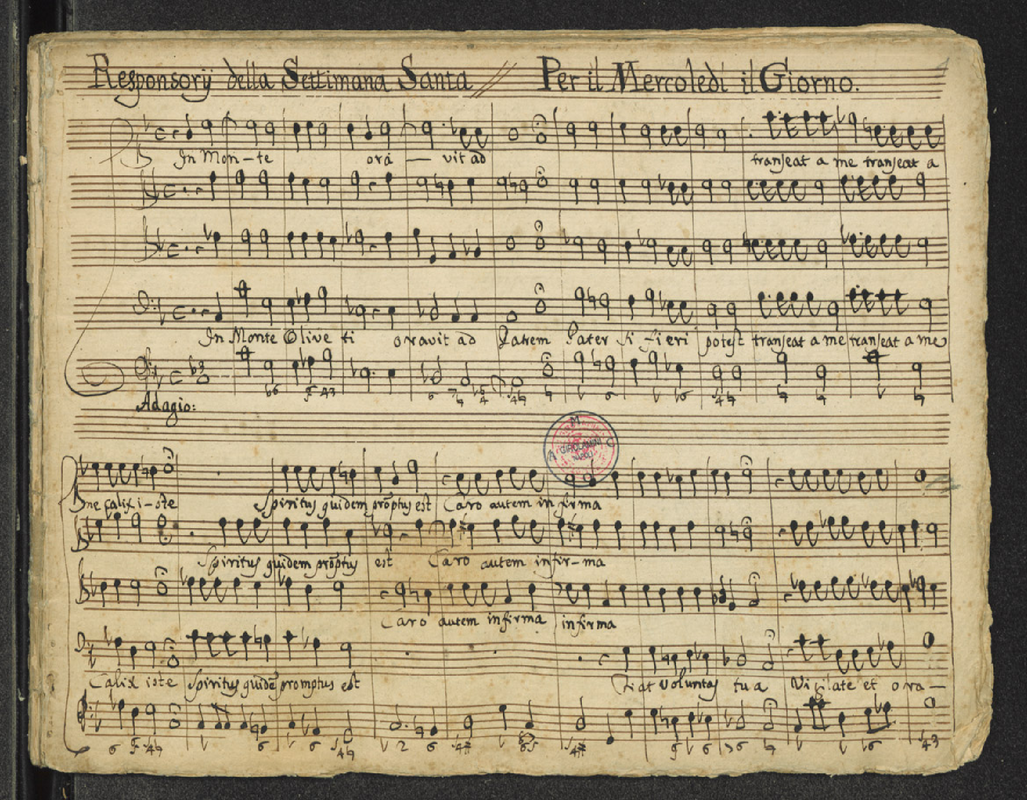 Responsorÿ della Settimana Santa // Per il Mercoledi il Giorno.
In Mon-te ora - vit ad transeat a me transeat a
In Monte Olive ti oravit ad Patrem Pater si fieri potest transeat a me transeat a me
Adagio:
me calix i-ste Spiritus quidem prõptus est Caro autem infirma
Spiritus quidem prõptus est Caro autem infir-ma
Caro autem infirma infirma
Calix iste Spiritus quidẽ promptus est Fiat voluntas tua Vigilate et ora-